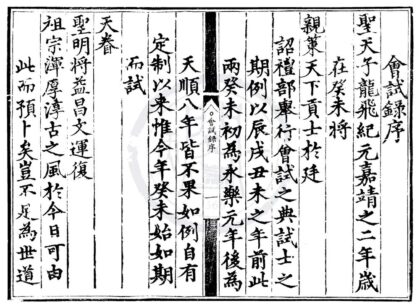 會試錄序
聖天子龍飛紀元嘉靖之二年歲
在癸未將
親策天下貢士於廷
詔禮部舉行會試之典試士之
期例以辰戌丑未之年前此
兩癸未初為永樂元年後為
會試錄序
天順八年皆不果如例自有
定制以來惟今年癸未始如期
而試
天眷
聖明將益昌文運復
祖宗渾厚淳古之風於今日可由
此而預卜矣豈不足為世道